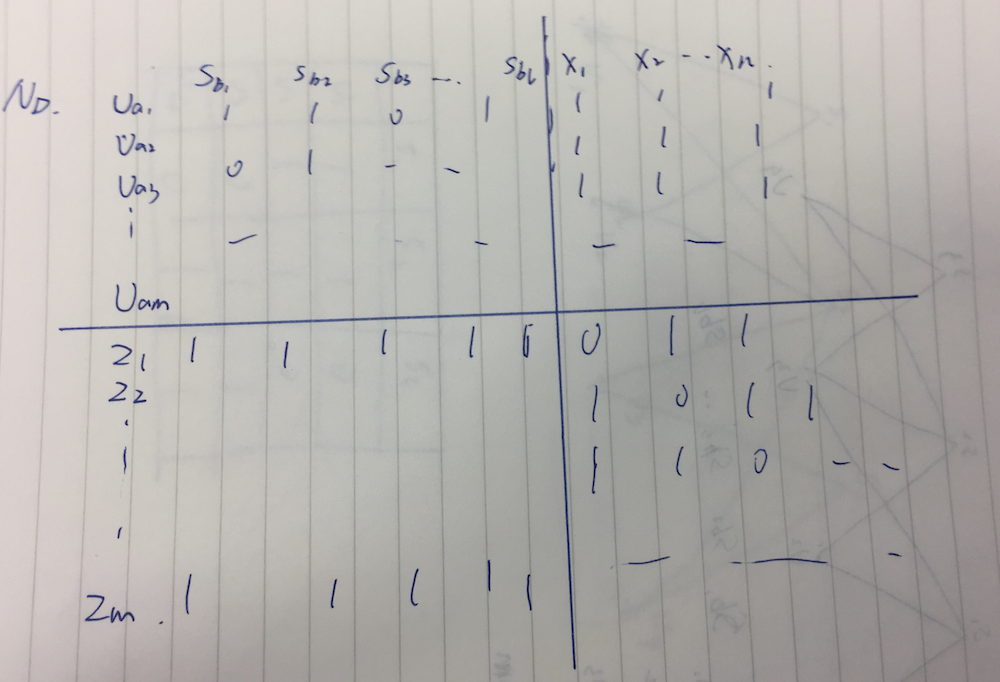 S_b1 S_b2 S_b3 -.. S_bl x_1 x_2 -..x_n.
N_D. U_a1 1 1 0 1 1 1 1
U_a2 1 1 1
U_a3 0 1 - - 1 1 1
⋮ - - - - -
U_am
z_1 1 1 1 1 1 0 1 1
z_2 1 0 1 1
⋮ 1 1 0 - -
- - -
z_m. 1 1 1 1 1